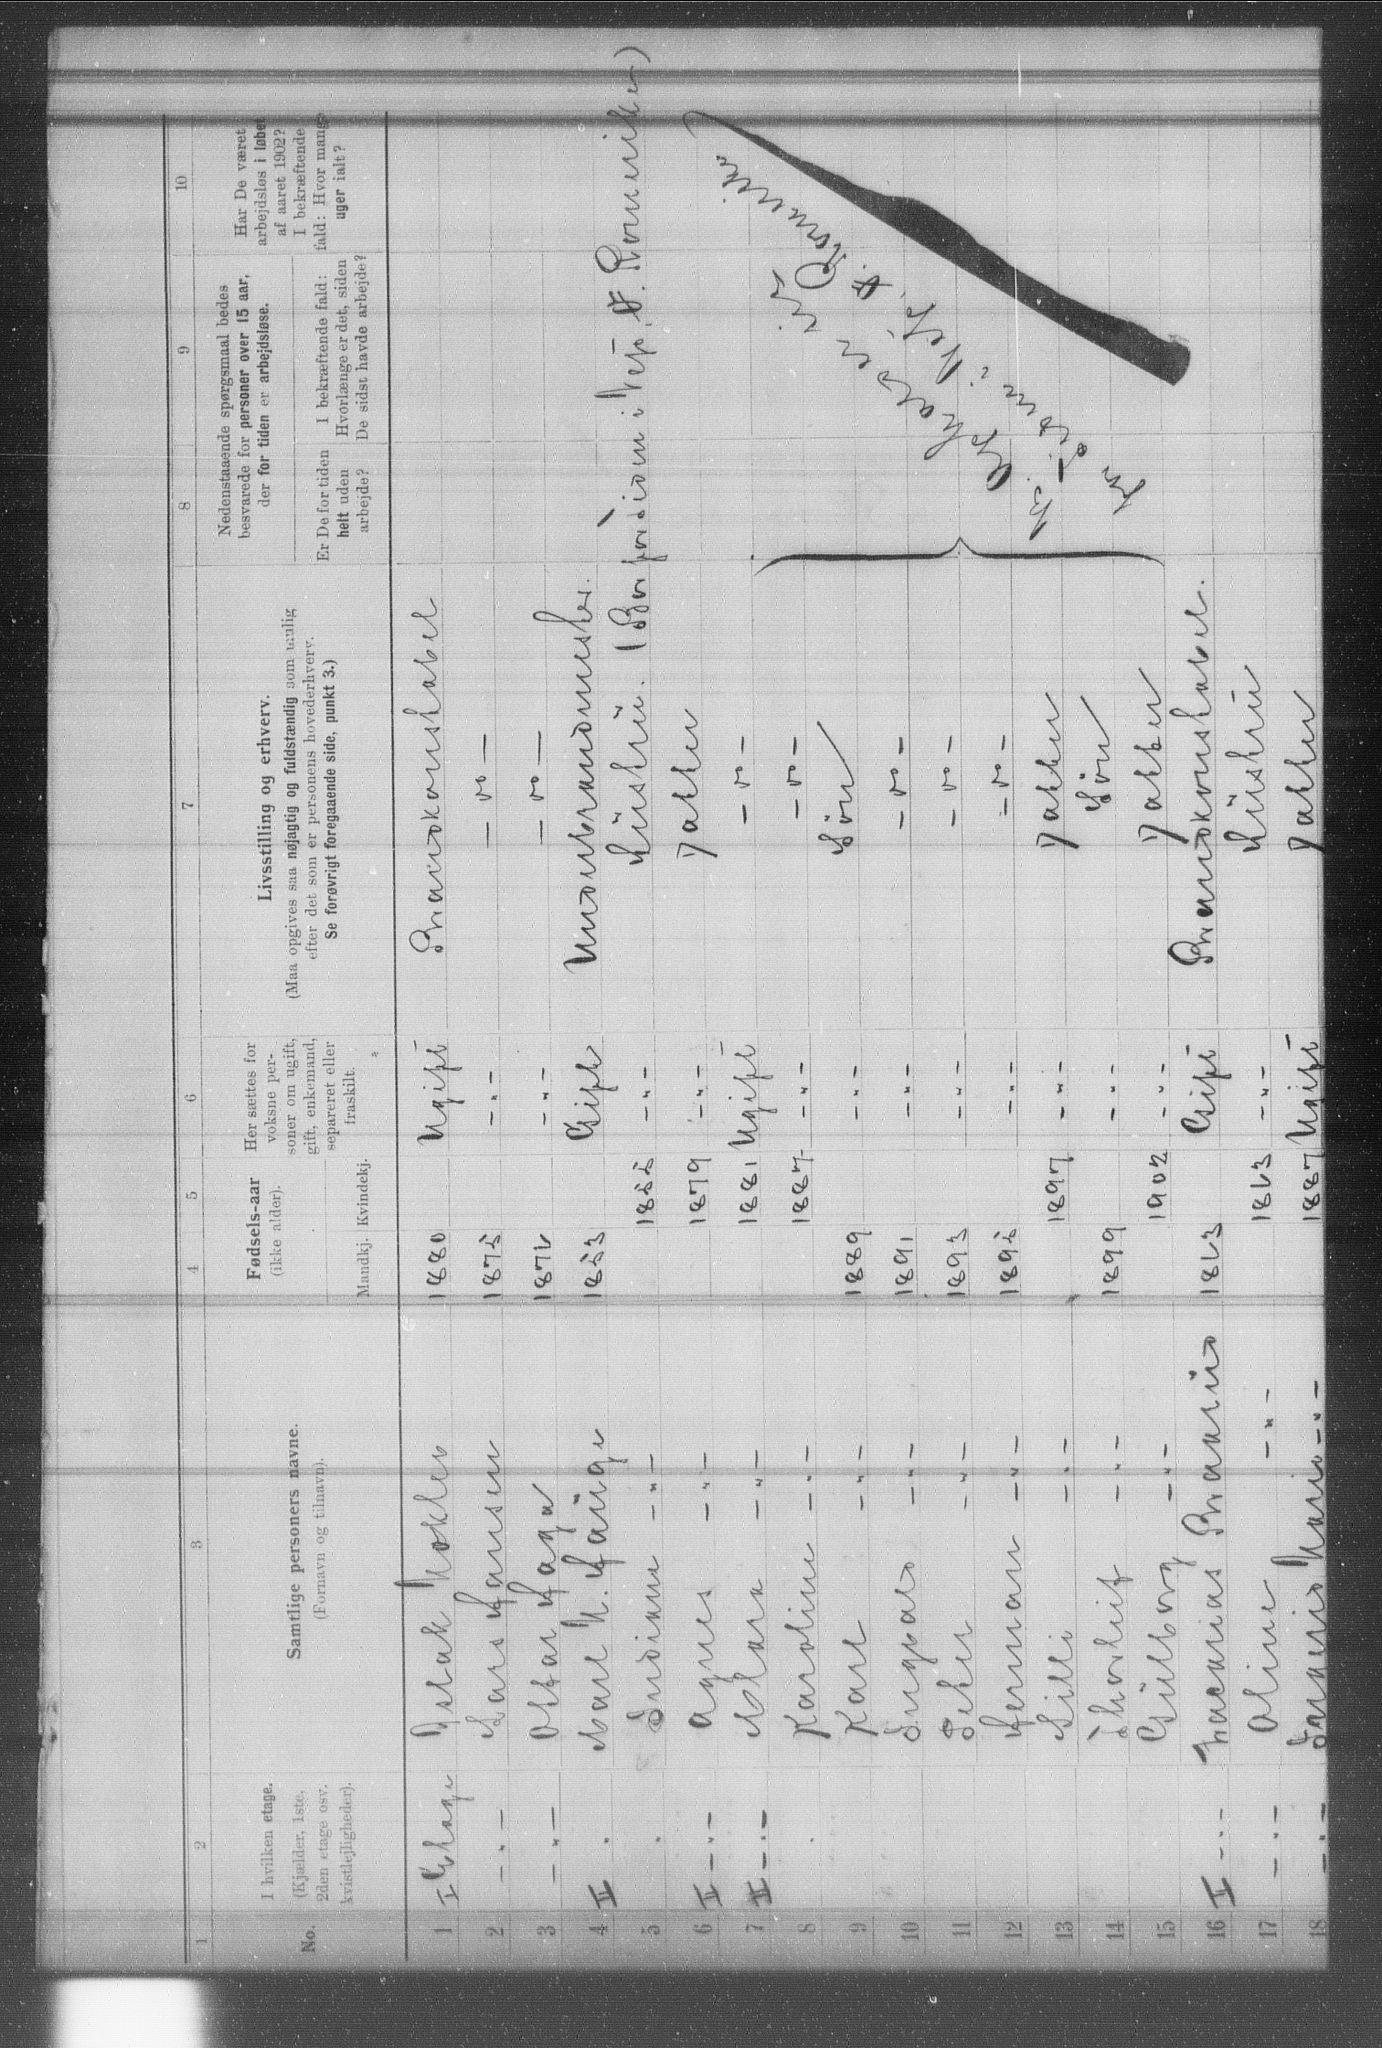 1 2 3 4 5 6 7 8 9 10
No.
I hvilken etage.
(Kjælder, 1ste,
2den etage osv.
kvistlejligheder).
Samtlige personers navne.
(Fornavn og tilnavn).
Fødsels-aar
(ikke alder).
Mandkj. Kvindekj.
Her sættes for
voksne per-
soner om ugift,
gift, enkemand,
separeret eller
fraskilt.
Livsstilling og erhverv.
(Maa opgives saa nøjagtig og fuldstændig som mulig
efter det som er personens hovederhverv.
Se forøvrigt foregaaende side, punkt 3.)
Nedenstaaende spørgsmaal bedes
besvarede for personer over 15 aar,
der for tiden er arbejdsløse.
Er De for tiden
helt uden
arbejde?
I bekræftende fald:
Hvorlænge er det, siden
De sidst havde arbejde?
Har De været
arbejdsløs i løbet
af aaret 1902?
I bekræftende
fald: Hvor mange
uger ialt?
1 I Etage Isak Mokleb 1880 Ugift Brandkonstabel
2 -"- Lars Hansen 1875 -"- - do -
3 -"- Ottar Haga -"- - do -
4 II Karl M. Hauge 1853 Gift Underbrandmester.
5 -"- 1855 -"- Hustru.
6 II -"- Agnes -"- 1879 -"- Datter
7 II -"- Klara -"- 1881 Ugift - do -
8 Karoline -"- 1887 -"- - do -
9 Karl -"- 1889 -"- Søn
10 Ingvar -"- 1891 -"- - do -
11 Peter -"- 1893 -"- - do -
12 Herman -"- 1895 -"- - do -
13 Lilli -"- 1897 -"- Datter
14 Thorleif -"- 1899 -"- Søn
15 -"- 1902 -"- Datter
16 I -"- Zacarias Gift Brandkonstabel.
17 -"- Aline -"- -"- Hustru
18 -"- -"- 1887 Ugift Datter